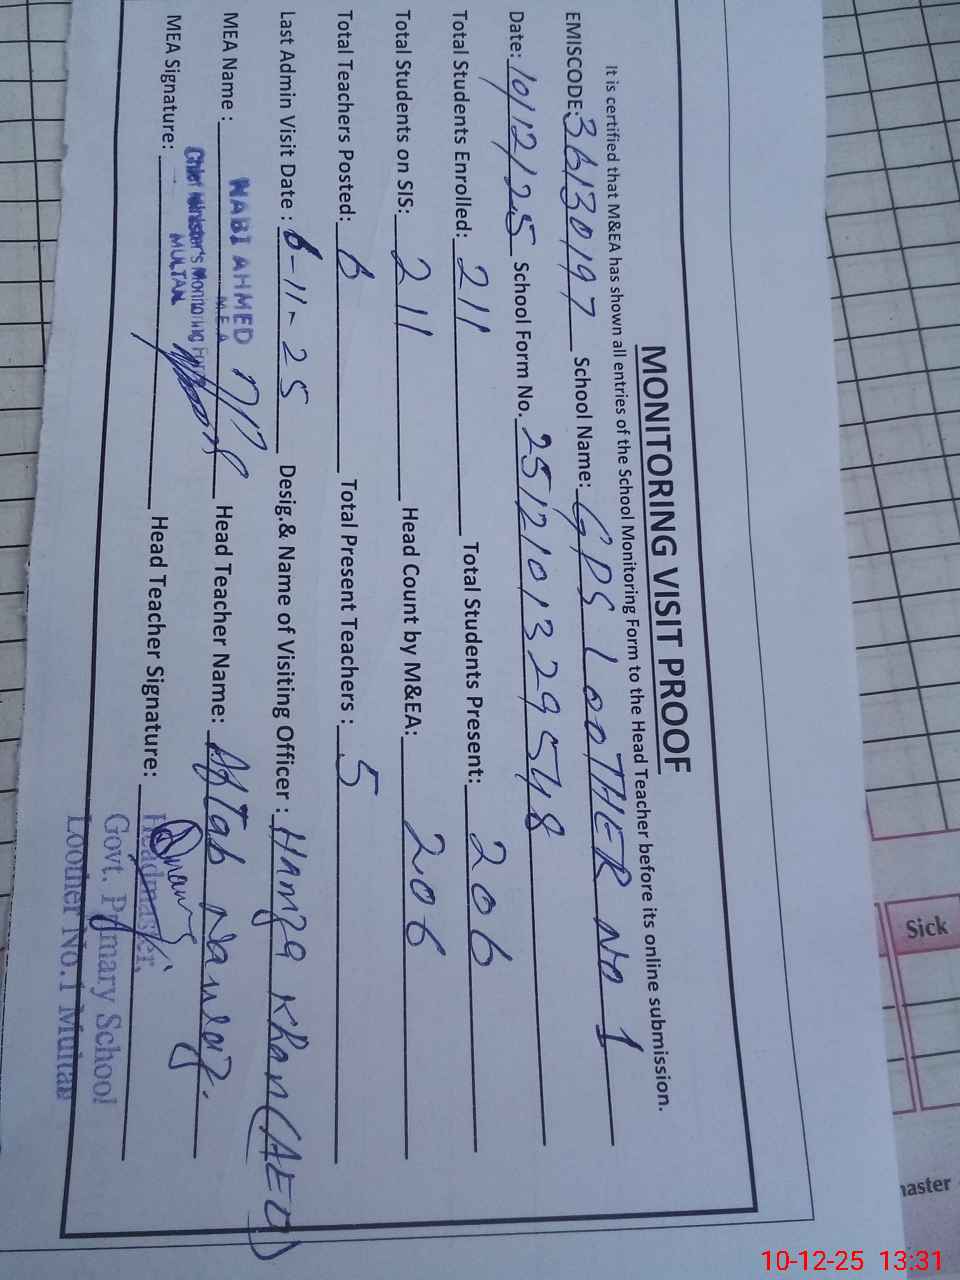 MONITORING VISIT PROOF
It is certified that M&EA has shown all entries of the School Monitoring Form to the Head Teacher before its online submission.
EMISCODE: 36130197 School Name: GPS LooTHER No 1
Date: 10/12/25 School Form No. 2512101329548
Total Students Enrolled: 211 Total Students Present: 206
Total Students on SIS: 211 Head Count by M&EA: 206
Total Teachers Posted: 6 Total Present Teachers : 5
Last Admin Visit Date : 6-11-25 Desig.& Name of Visiting Officer : Hamza Khan (AEO)
MEA Name : NABI AHMED Head Teacher Name: Aftab
MEA
Chief Minister's Monitoring Force
MULTAN
MEA Signature: Head Teacher Signature:
Headmaster,
Govt. Primary School
Loother No.1 Multan
Sick
master
10-12-25 13:31